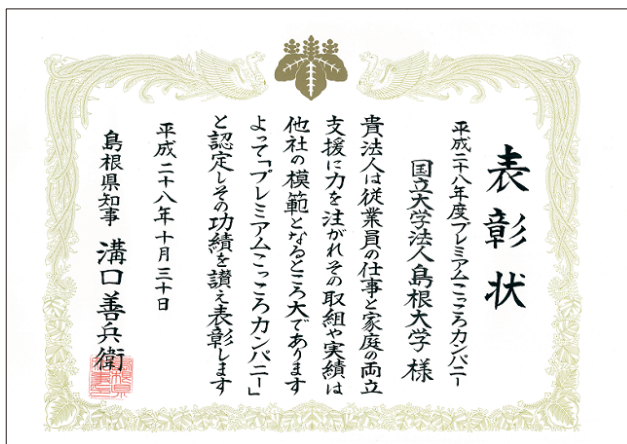 表彰状
平成二十八年度プレミアムこっころカンパニー
国立大学法人島根大学 様
貴法人は従業員の仕事と家庭の両立
支援に力を注がれその取組や実績は
他社の模範となるところ大であります
よって「プレミアムこっころカンパニー」
と認定しその功績を讃え表彰します
平成二十八年十月三十日
島根県知事 溝口善兵衛